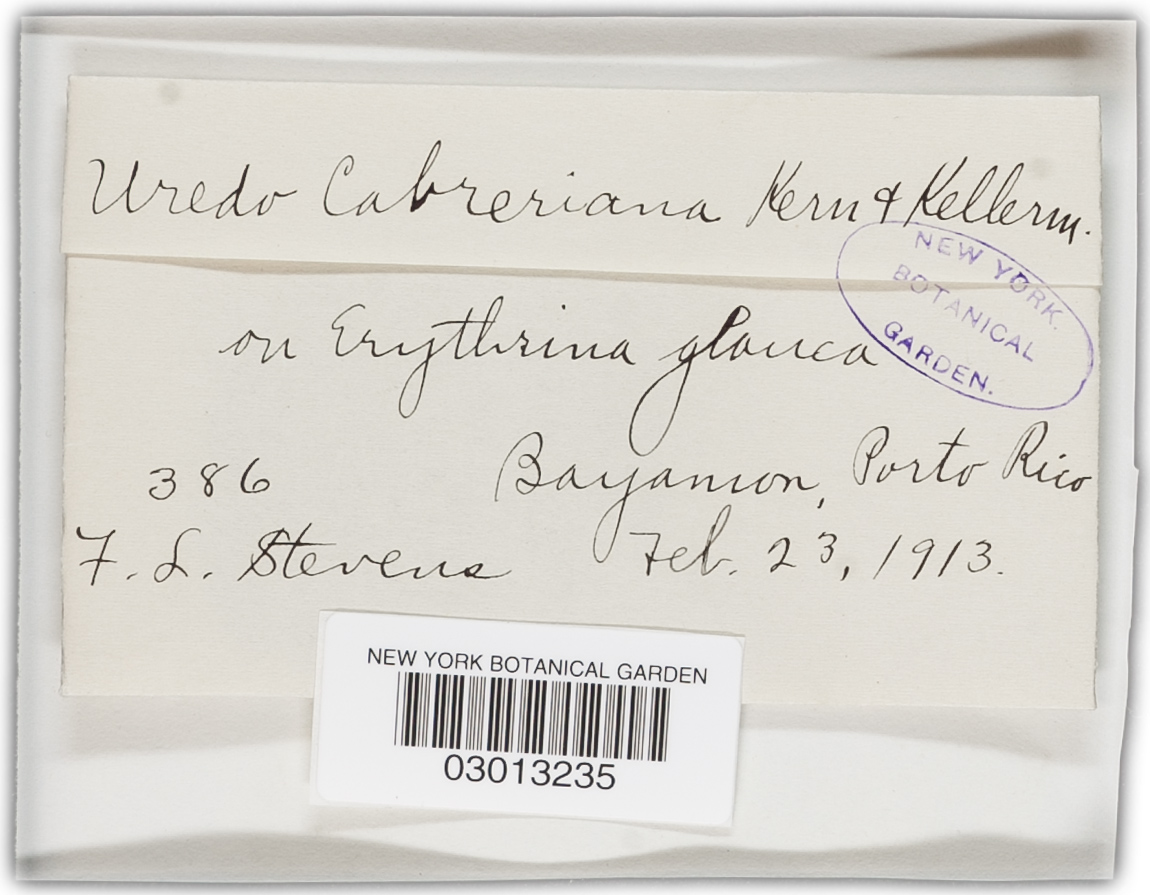 Uredo Cabreriana Kern & Kellerm.
NEW YORK.
BOTANICAL
GARDEN.
on Erythrina glauca
386 Bayamon, Porto Rico
F. L. Stevens Feb. 23, 1913.
NEW YORK BOTANICAL GARDEN
03013235